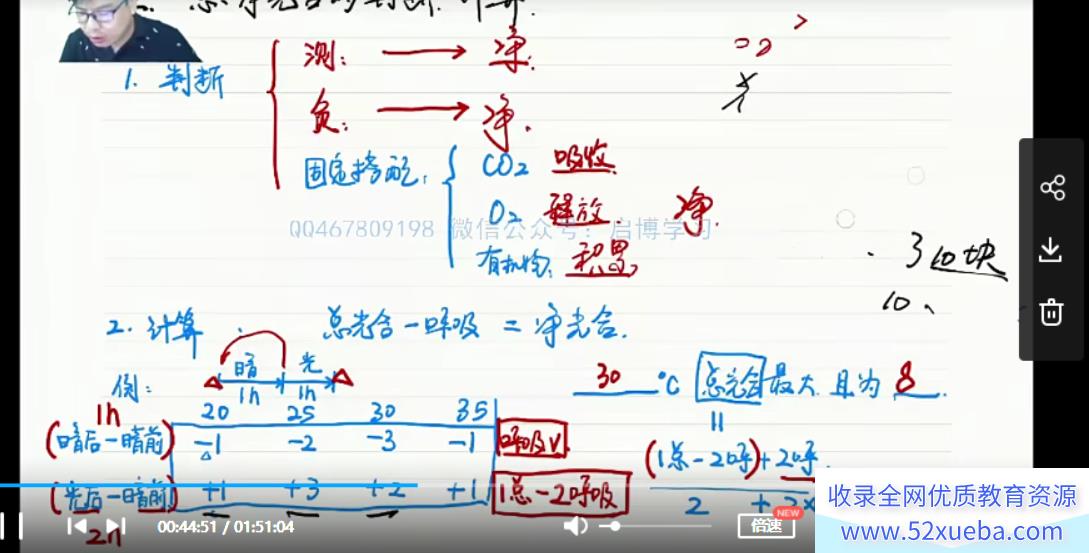 总净光合的判断.计算.
1. 判断
测: → 净.
负: → 净.
固定搭配:
CO2 吸收
O2 释放. 净.
QQ467809198 微信公众号：启博学习
有机物: 积累
3 10块
10、
2. 计算 总光合-呼吸 = 净光合.
例: 暗 光
1h 1h
30 °C 总光合最大 且为 8.
1h 20 25 30 35
(暗后-暗前) -1 -2 -3 -1 呼吸V
(1总-2呼)+2呼
(光后-暗前) +1 +3 +2 +1 1总-2呼吸
2h
2 + 2x
00:44:51 / 01:51:04
倍速 NEW
收录全网优质教育资源
www.52xueba.com